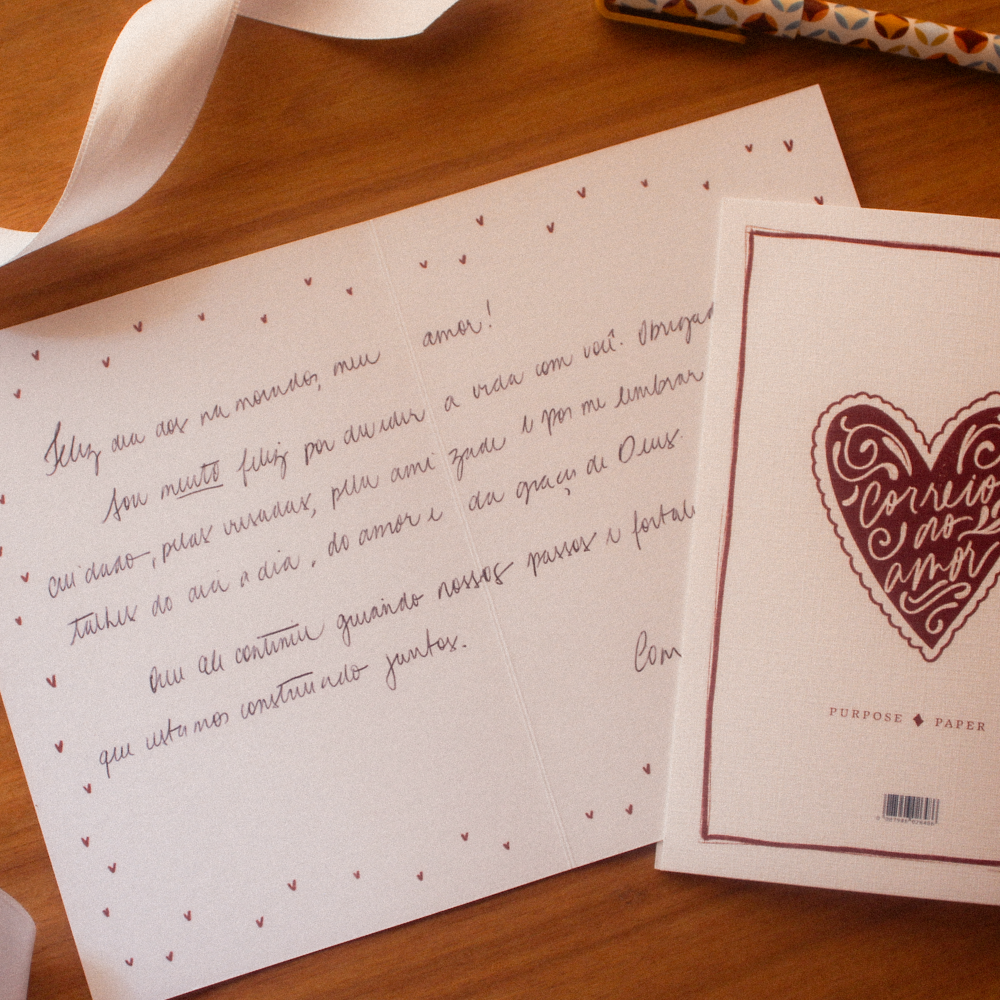 Feliz dia dos namorados, meu amor!
Sou muito feliz por dividir a vida com você. Obrigad
cuidado, pelas risadas, pela amizade e por me lembrar
talhes do dia a dia, do amor e da graça de Deus.
Que Ele continue guiando nossos passos e fortale
que estamos construindo juntos.
Com
Correio
do
amor
PURPOSE PAPER